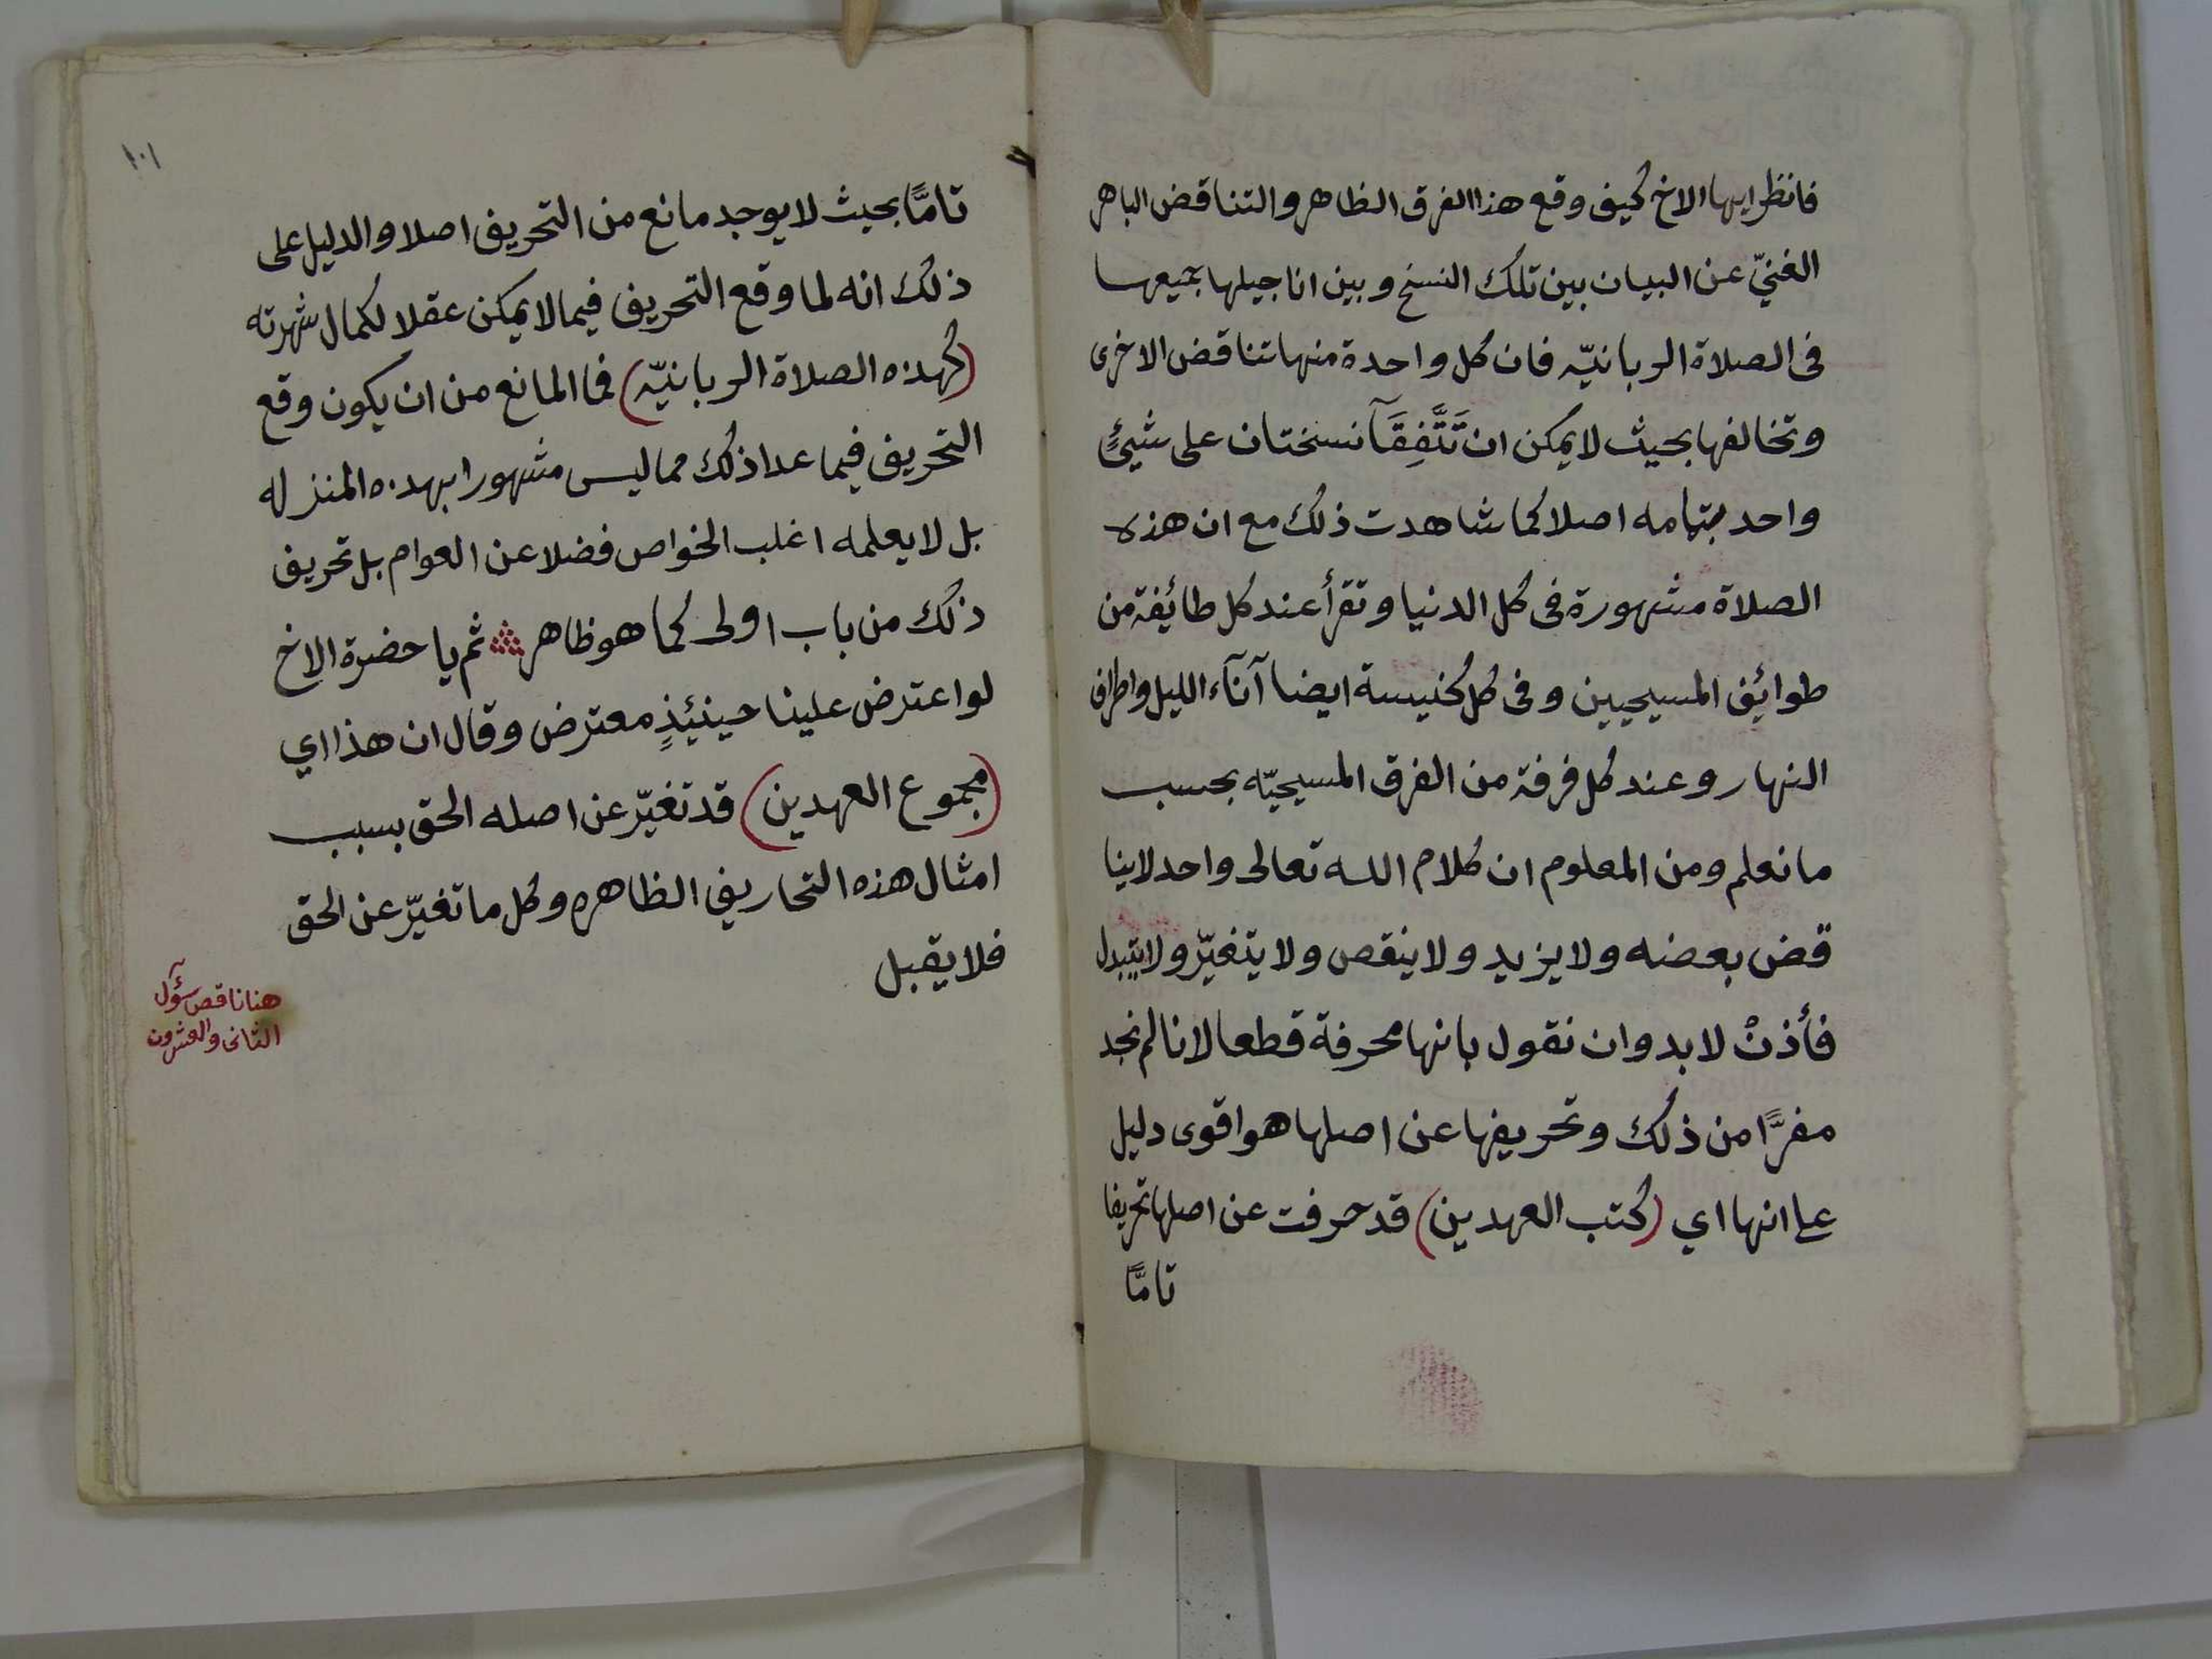 فانظر ايها الاخ كيف وقع هذا الفرق الظاهر والتناقض الباهر
الغنيّ عن البيان بين تلك النسخ وبين اناجيلها جميعها
فى الصلاة الربانيّه فان كل واحدة منها تناقض الاخرى
وتخالفها بحيث لا يمكن ان تَتَّفِقَآ نسختان على شيئٍ
واحد بتمامه اصلا كما شاهدت ذلك مع ان هذه
الصلاة مشهورة فى كل الدنيا وتقرأ عند كل طائيفة من
طوائيف المسيحيين وفى كل كنيسة ايضا آنآء الليل واطراف
النهار وعند كل فرقة من الفرق المسيحيّه بحسب
ما نعلم ومن المعلوم ان كلام الله تعالى واحد لاينا
قض بعضه ولا يزيد ولا ينقص ولا يتغيّر ولا يتبدل
فأذنْ لا بد وان نقول بانها محرفة قطعا لانا لم نجد
مفرًّا من ذلك وتحريفها عن اصلها هو اقوى دليل
على انها اي (كتب العهدين) قد حرفت عن اصلها تحريفا
تامًّا
١٠١
تامًّا بحيث لا يوجد مانع من التحريف اصلا والدليل على
ذلك انه لما وقع التحريف فيما لا يمكن عقلا لكمال شهرته
(كهذه الصلاة الربانيّه) فما المانع من ان يكون وقع
التحريف فيما عدا ذلك مما ليس مشهورا بهذه المنزله
بل لا يعلمه اغلب الخواص فضلا عن العوام بل تحريف
ذلك من باب اولى كما هو ظاهر ثم يا حضرة الاخ
لو اعترض علينا حينيئذٍ معترض وقال ان هذا اي
(مجموع العهدين) قد تغيّر عن اصله الحق بسبب
امثال هذه التحاريف الظاهره وكل ما تغيّر عن الحق
فلا يقبل
هنا ناقص سؤل
الثانى والعشرون